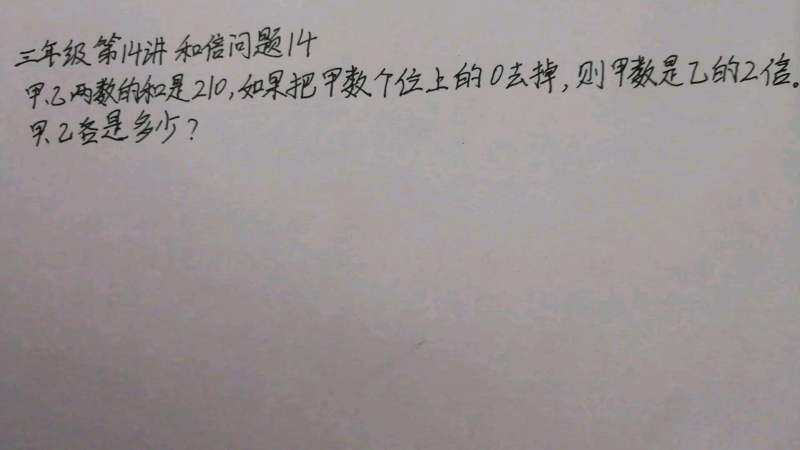 三年级第14讲 和倍问题14
甲、乙两数的和是210,如果把甲数个位上的0去掉,则甲数是乙的2倍。
甲、乙各是多少?